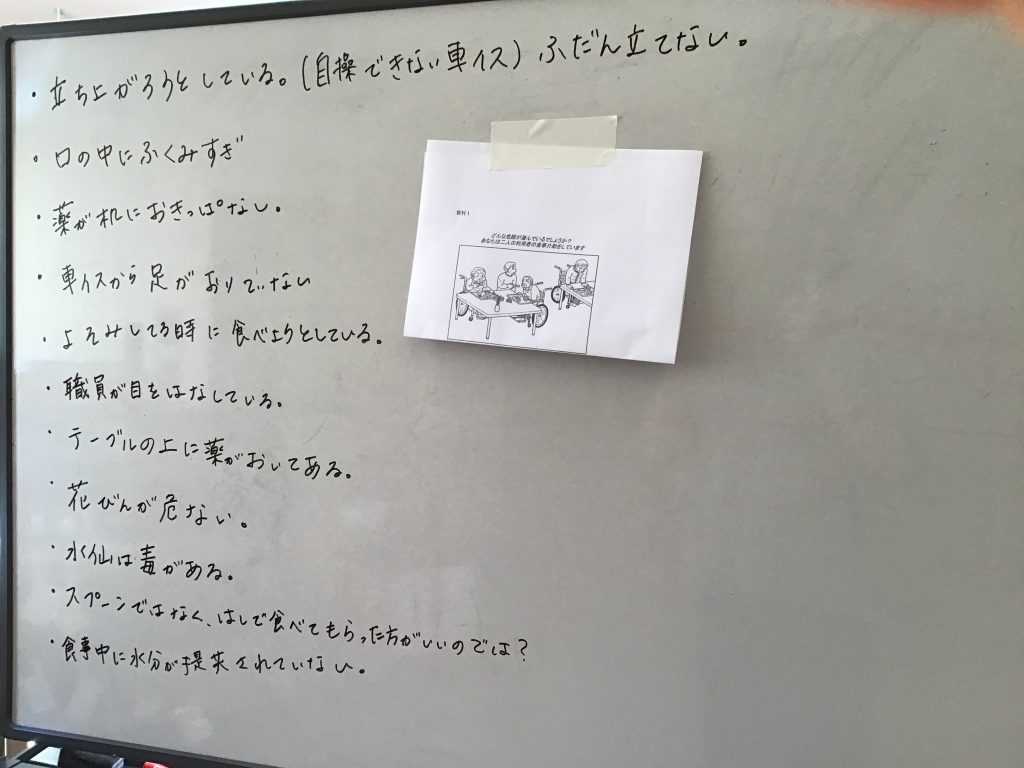 ・立ち上がろうとしている。(自操できない車イス) ふだん立てない。
・口の中にふくみすぎ
・薬が机におきっぱなし。
・車イスから足がおりていない
・よそみしてる時に食べようとしている。
・職員が目をはなしている。
・テーブルの上に薬がおいてある。
・花びんが危ない。
・水仙は毒がある。
・スプーンではなく、はしで食べてもらった方がいいのでは?
・食事中に水分が提供されていない。
資料1
どんな危険が潜んでいるでしょうか?
あなたは二人の利用者の食事介助をしています